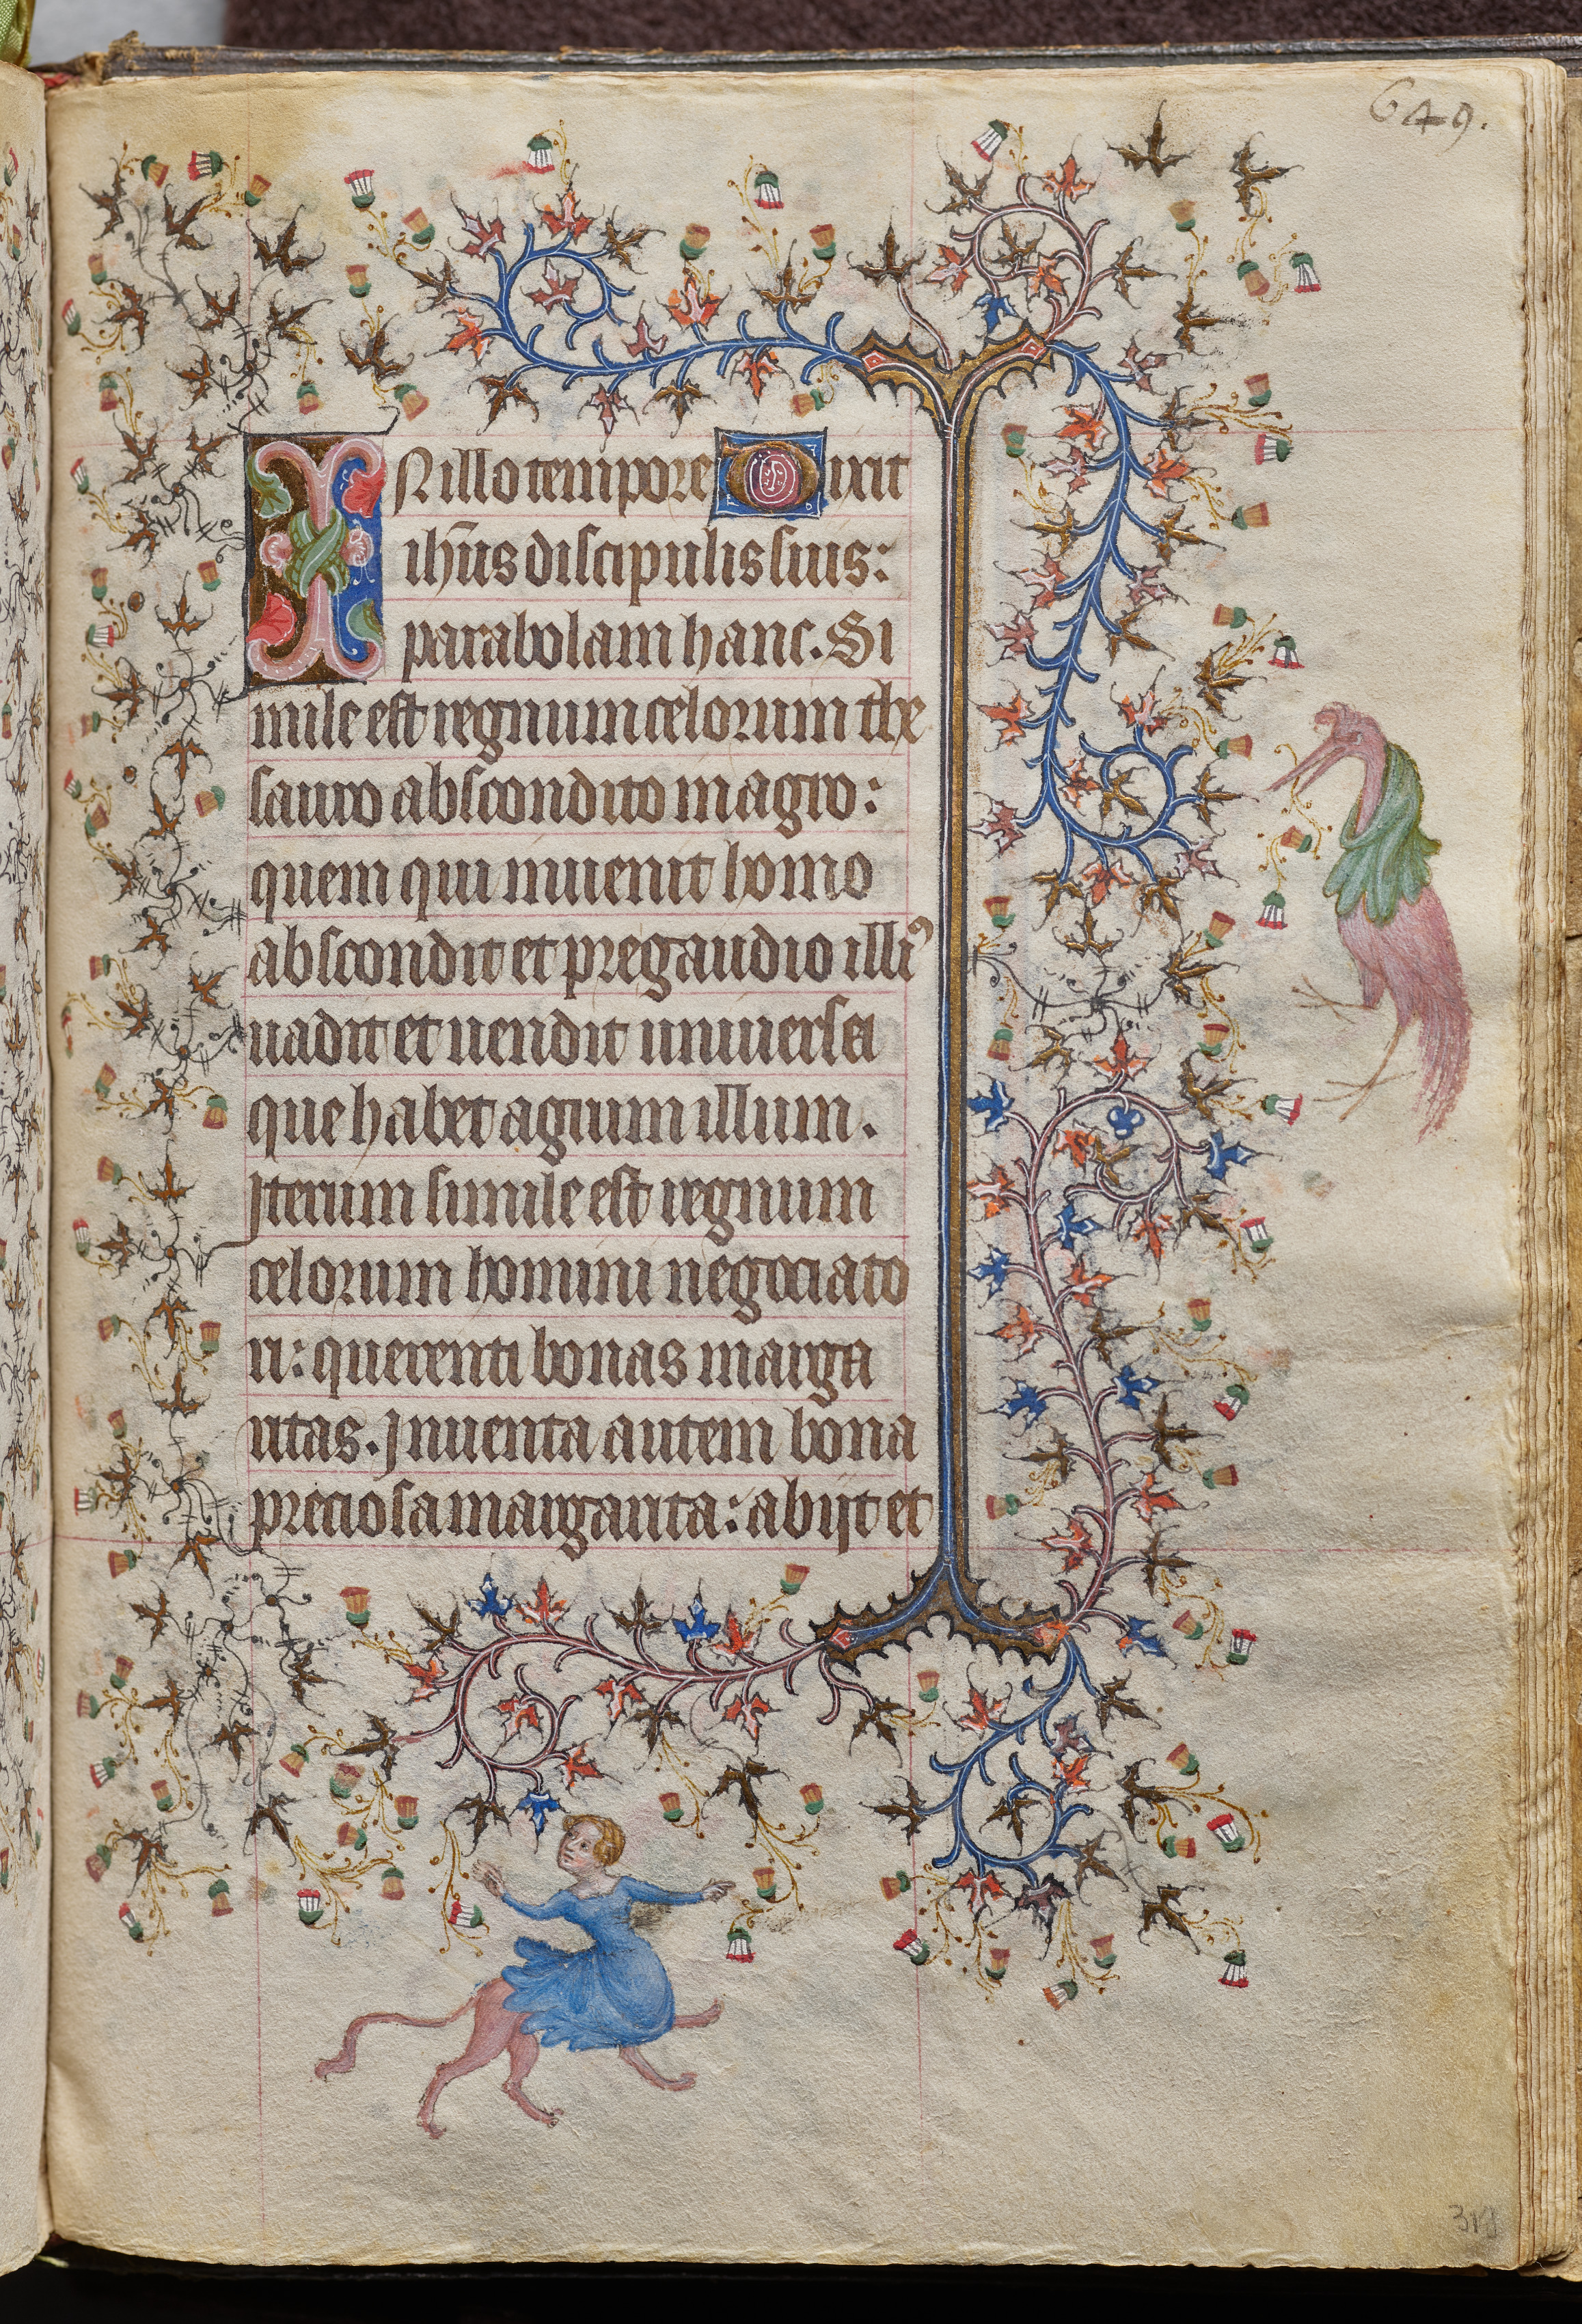 649.
IN illo tempore Dixit
ih̄us discipulis suis:
parabolam hanc. Si
mile est regnum celorum the
sauro abscondito in agro:
quem qui inuenit homo
abscondit et pre gaudio illiꝰ
uadit et uendit uniuersa
que habet agrum illum.
Iterum simile est regnum
celorum homini negociato
ri: querenti bonas marga
ritas. Inuenta autem bona
preciosa margarita: abijt et